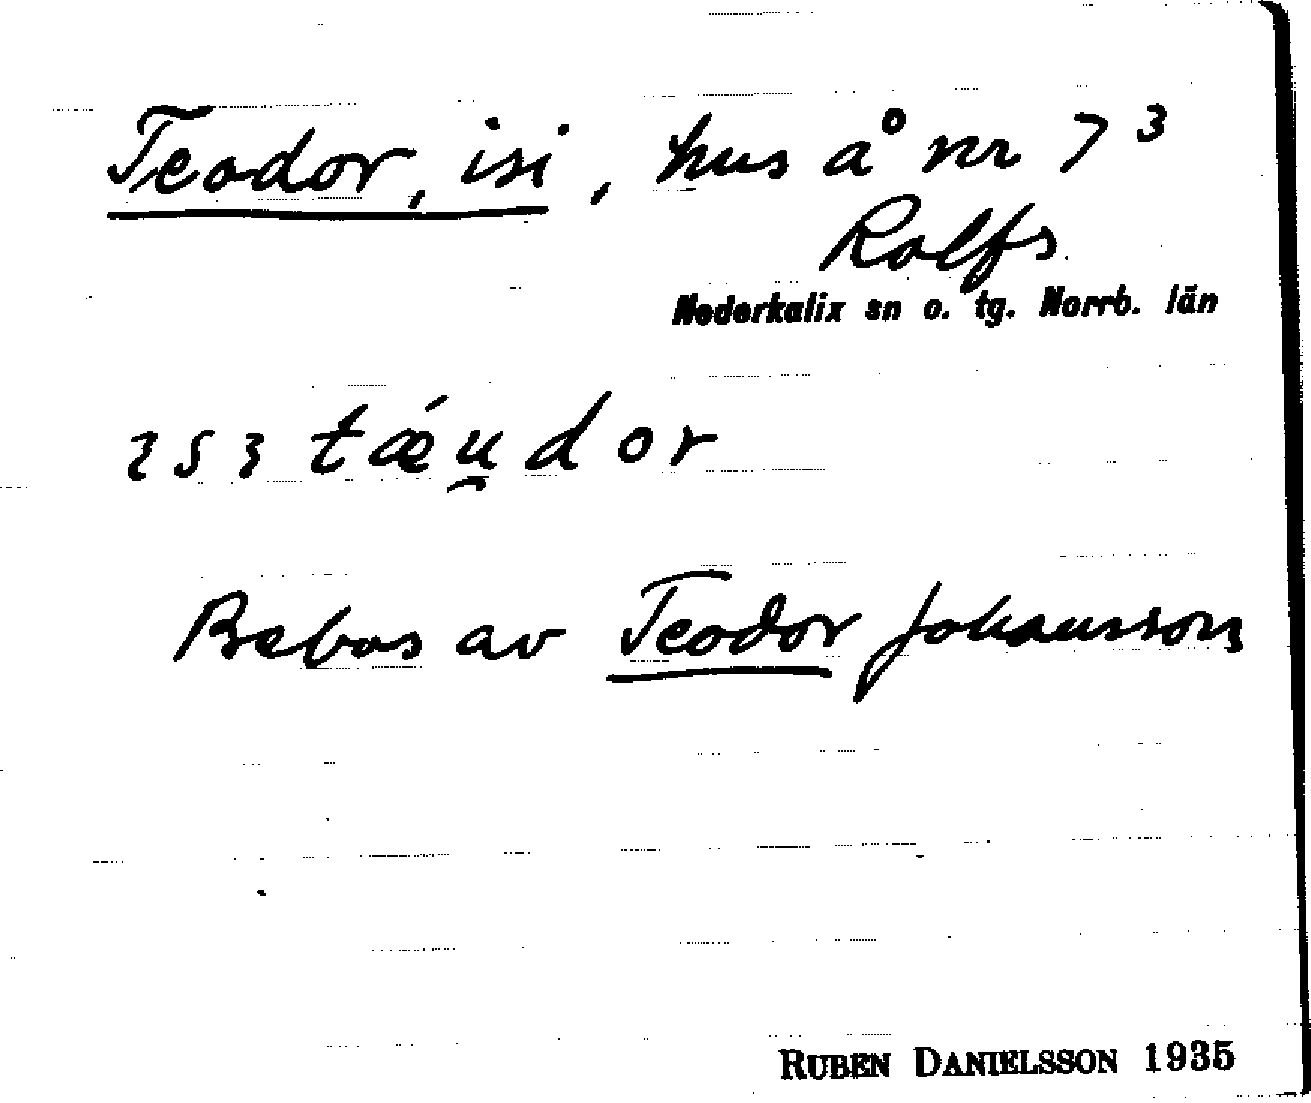 Teodor, isi, hus å nr 7³
Rolfs
Nederkalix sn o. tg. Norrb. län
ɿsɿ tǽu̯dor
Bebos av Teodor Johansson
RUBEN DANIELSSON 1935